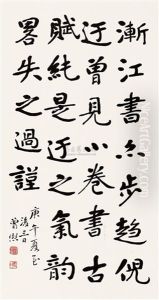 漸江書亦步趨倪
迂曾見小卷書古
賦純是迂之氣韻
畧失之過謹
庚午夏五
三日
曾熙